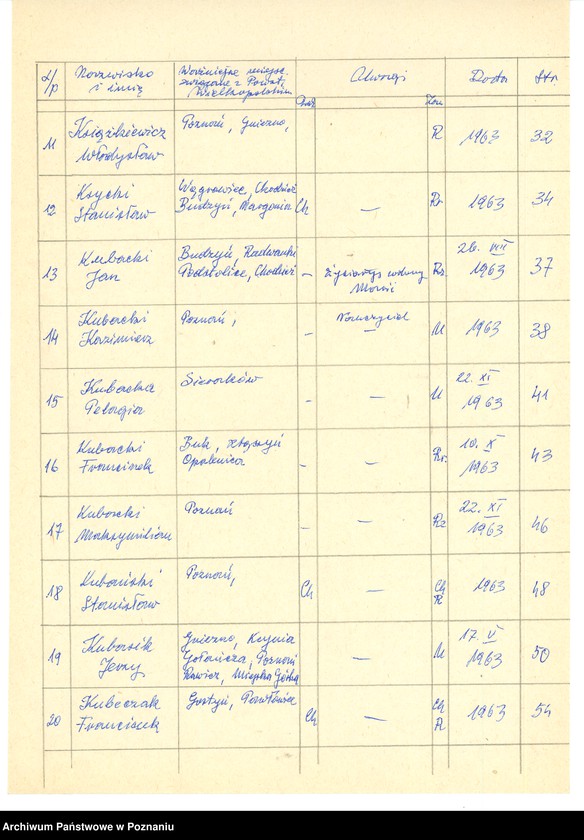 L/p Nazwisko i imię Ważniejsze miejsc. związane z Powst. Wielkopolskim Uwagi Data Str
11 Książkiewicz Władysław Poznań, Gniezno, R 1963 32
12 Ksycki Stanisław Wągrowiec, Chodzież Budzyń, Margonin Ch — Rr 1963 34
13 Kubacki Jan Budzyń, Radwanki Podstolice, Chodzież – Życiorys wdowy Marii Rr. 26. VIII 1963 37
14 Kubacki Kazimierz Poznań, – Nauczyciel — M 1963 38
15 Kubacka Pelagia Sieraków – — M 22. XI 1963 41
16 Kubacki Franciszek Buk, Opalenica – — Rr. 10. X 1963 43
17 Kubacki Maksymilian Poznań – — Rr 22. XI 1963 46
18 Kubański Stanisław Poznań, Ch — Ch R 1963 48
19 Kubasik Jerzy Gniezno, Kcynia Gołańcza, Poznań Rawicz, Miejska Górka — M 17. V 1963 50
20 Kubeczak Franciszek Gostyń, Pawłowice Ch — Ch R 1963 54
Archiwum Państwowe w Poznaniu